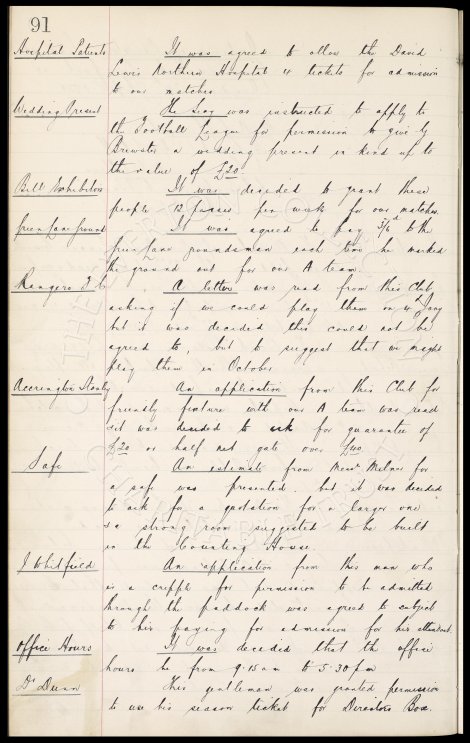 91
Hospital Patients It was agreed to allow the David
Lewis Northern Hospital 4 tickets for admission
to our matches
Wedding Present The Secy was instructed to apply to
the Football League for permission to give
Brewster a wedding present in kind up to
the value of £20
Exhibitors It was decided to grant these
people 12 passes per week for our matches
Green Lane Ground It was agreed to pay 3/6d to the
Green Lane groundsman each time he marked
the ground out for our A team.
Rangers F C A letter was read from this Club
asking if we could play them on Jany
but it was decided this could not be
agreed to, but to suggest that we might
play them in October
Accrington Stanly An application from this Club for
friendly fixture with our A team was read
& it was decided to ask for guarantee of
£20 or half net gate over £40
Safe An estimate from Messrs Milner for
a safe was presented but it was decided
to ask for a quotation for a larger one
& a strong room suggested to be built
in the Counting House.
J Whitfield An application from this man who
is a cripple for permission to be admitted
through the paddock was agreed to subject
to his paying for admission for his attendant.
Office Hours It was decided that the office
hours be from 9.15 am to 5.30 pm
Dr Dunn This gentleman was granted permission
to use his season ticket for Directors Box.